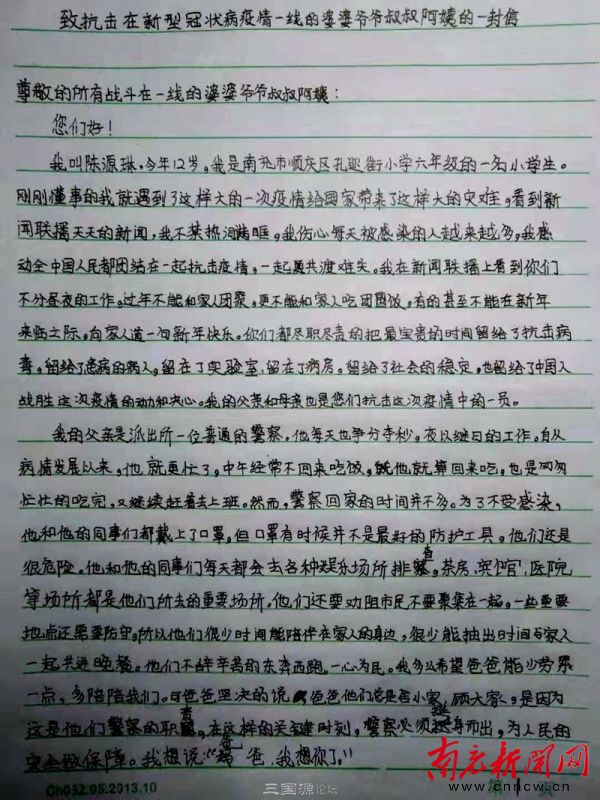 致抗击在新型冠状病疫情一线的婆婆爷爷叔叔阿姨的一封信
尊敬的所有战斗在一线的婆婆爷爷叔叔阿姨：
您们好！
我叫陈源琳，今年12岁。我是南充市顺庆区孔迩街小学六年级的一名小学生。
刚刚懂事的我就遇到了这样大的一次疫情给国家带来了这样大的灾难，看到新
闻联播天天的新闻，我不禁热泪满眶。我伤心每天被感染的人越来越多，我感
动全中国人民都团结在一起抗击疫情，一起共渡难关。我在新闻联播上看到你们
不分昼夜的工作。过年不能和家人团聚，更不能和家人吃团圆饭，有的甚至不能在新年
来临之际，向家人道一句新年快乐。你们都尽职尽责的把最宝贵的时间留给了抗击病
毒。留给了患病的病人，留在了实验室，留在了病房。留给了社会的稳定，也留给了中国人
战胜这次疫情的动力和决心。我的父亲和母亲也是您们抗击这次疫情中的一员。
我的父亲是派出所一位普通的警察，他每天也争分夺秒，夜以继日的工作。自从
病情发展以来，他就更忙了，中午经常不回来吃饭，他就算回来吃，也是匆匆
忙忙的吃完，又继续赶着去上班。然而，警察回家的时间并不多。为了不受感染，
他和他的同事们都戴上了口罩，但口罩有时候并不是最好的防护工具。他们还是
很危险。他和他的同事们每天都会去各种娱乐场所排查，茶房、宾馆、医院
等场所都是他们所去的重要场所。他们还要劝阻市民不要聚集在一起。一些重要
地点还需要防守，所以他们很少时间能陪伴在家人的身边，很少能抽出时间与家人
一起共进晚餐。他们不辞辛苦的东奔西跑，一心为民。我多么希望爸爸能少劳累
一点，多陪陪我们。可爸爸坚决的说，爸爸他们总是舍小家，顾大家，是因为
这是他们警察的职责，在这样的关键时刻，警察必须挺身而出，为人民的
安全做保障。我想说："爸爸，我想你了。"
Ch032.95.2013.10
三国源论坛
南充新闻网
www.cnncw.cn
第 1 页